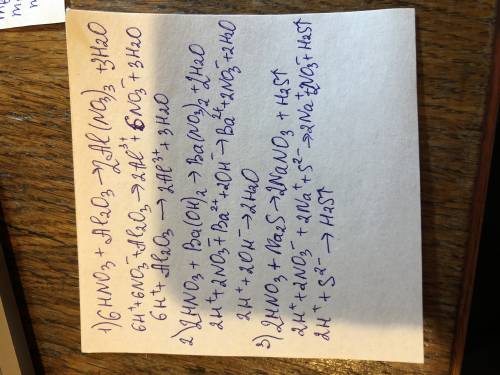 1) 6HNO3 + Al2O3 → 2Al(NO3)3 + 3H2O
6H⁺ + 6NO3⁻ + Al2O3 → 2Al³⁺ + 6NO3⁻ + 3H2O
6H⁺ + Al2O3 → 2Al³⁺ + 3H2O
2) 2HNO3 + Ba(OH)2 → Ba(NO3)2 + 2H2O
2H⁺ + 2NO3⁻ + Ba²⁺ + 2OH⁻ → Ba²⁺ + 2NO3⁻ + 2H2O
2H⁺ + 2OH⁻ → 2H2O
3) 2HNO3 + Na2S → 2NaNO3 + H2S↑
2H⁺ + 2NO3⁻ + 2Na⁺ + S²⁻ → 2Na⁺ + 2NO3⁻ + H2S↑
2H⁺ + S²⁻ → H2S↑